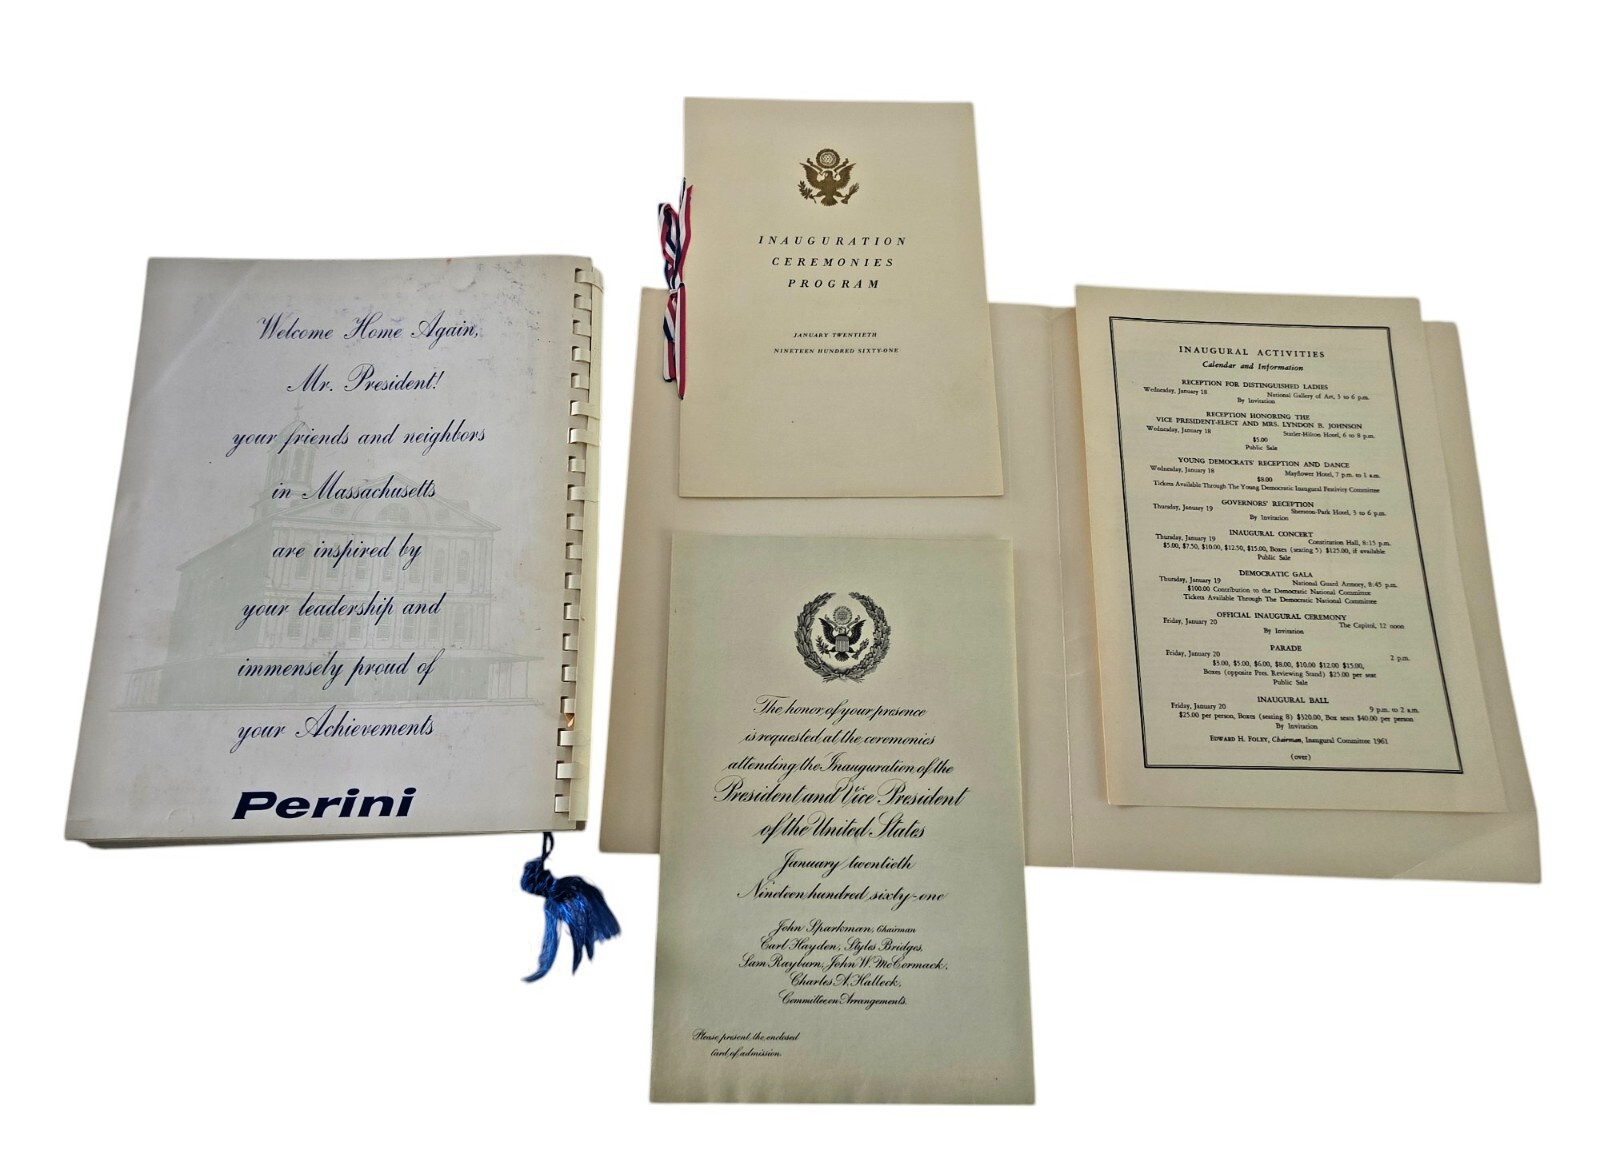 Welcome Home Again,
Mr. President!
your friends and neighbors
in Massachusetts
are inspired by
your leadership and
immensely proud of
your Achievements
Perini
INAUGURATION
CEREMONIES
PROGRAM
JANUARY TWENTIETH
NINETEEN HUNDRED SIXTY-ONE
The honor of your presence
is requested at the ceremonies
attending the Inauguration of the
President and Vice President
of the United States
January twentieth
Nineteen hundred sixty-one
John Sparkman, Chairman
Carl Hayden, Styles Bridges,
Sam Rayburn, John W. McCormack,
Charles A. Halleck,
Committee on Arrangements.
Please present the enclosed
card of admission.
INAUGURAL ACTIVITIES
Calendar and Information
RECEPTION FOR DISTINGUISHED LADIES
Wednesday, January 18 National Gallery of Art, 3 to 6 p.m.
By Invitation
RECEPTION HONORING THE
VICE PRESIDENT-ELECT AND MRS. LYNDON B. JOHNSON
Wednesday, January 18 Statler-Hilton Hotel, 6 to 8 p.m.
$5.00
Public Sale
YOUNG DEMOCRATS' RECEPTION AND DANCE
Wednesday, January 18 Mayflower Hotel, 7 p.m. to 1 a.m.
$8.00
Tickets Available Through The Young Democratic Inaugural Festivity Committee
GOVERNORS' RECEPTION
Thursday, January 19 Sheraton-Park Hotel, 3 to 6 p.m.
By Invitation
INAUGURAL CONCERT
Thursday, January 19 Constitution Hall, 8:15 p.m.
$5.00, $7.50, $10.00, $12.50, $15.00, Boxes (seating 5) $125.00, if available
Public Sale
DEMOCRATIC GALA
Thursday, January 19 National Guard Armory, 8:45 p.m.
$100.00 Contribution to the Democratic National Committee
Tickets Available Through The Democratic National Committee
OFFICIAL INAUGURAL CEREMONY
Friday, January 20 The Capitol, 12 noon
By Invitation
PARADE
Friday, January 20 2 p.m.
$3.00, $5.00, $6.00, $8.00, $10.00 $12.00 $15.00,
Boxes (opposite Pres. Reviewing Stand) $25.00 per seat
Public Sale
INAUGURAL BALL
Friday, January 20 9 p.m. to 2 a.m.
$25.00 per person, Boxes (seating 8) $320.00, Box seats $40.00 per person
By Invitation
EDWARD H. FOLEY, Chairman, Inaugural Committee 1961
(over)